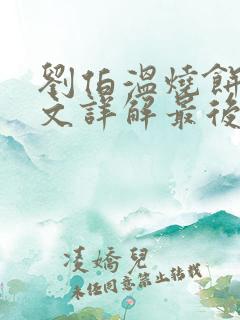 劉伯溫燒餅
文詳解最後
凌嬌兒
未经同意禁止转载